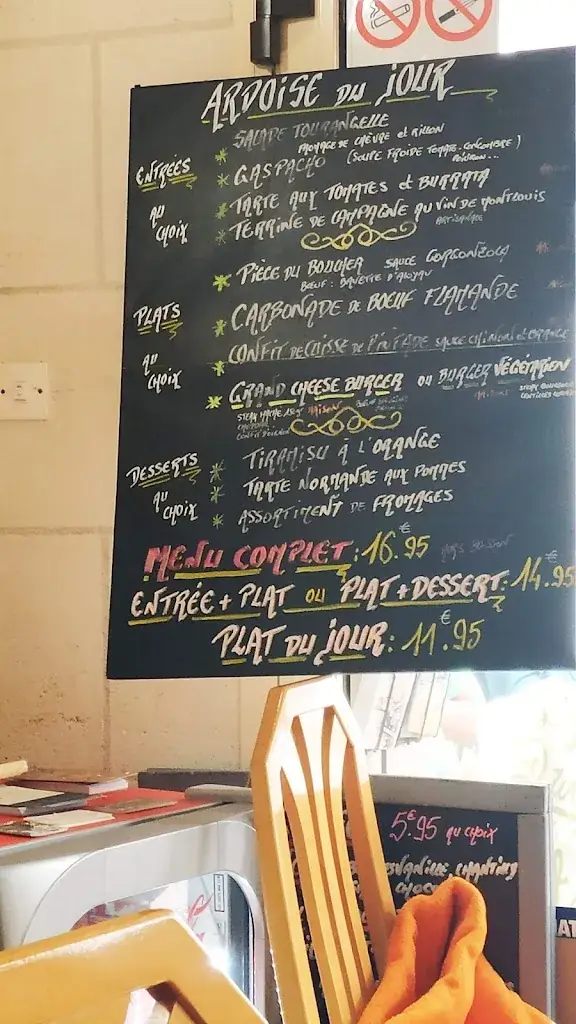 ARDOISE DU JOUR
SALADE TOURANGELLE
FROMAGE DE CHÈVRE et RILLON
ENTRÉES
GASPACHO (SOUPE FROIDE TOMATE. CONCOMBRE)
TARTE AUX TOMATES et BURRATA
AU CHOIX
TERRINE DE CAMPAGNE AU VIN DE MONTLOUIS
ARTISANALE
PIÈCE DU BOUCHER SAUCE GORGONZOLA
BŒUF : BAVETTE D'ALOYAU
PLATS
CARBONADE DE BOEUF FLAMANDE
AU CHOIX
CONFIT DE CUISSE DE PINTADE SAUCE CHINON et ORANGE
GRAND CHEESE BURGER OU BURGER VÉGÉTARIEN
MAISON
TIRAMISU À L'ORANGE
DESSERTS
TARTE NORMANDE AUX POMMES
AU CHOIX
ASSORTIMENT DE FROMAGES
MENU COMPLET : 16.€95
ENTRÉE + PLAT OU PLAT + DESSERT : 14.€95
PLAT DU JOUR : 11.€95
5.€95 AU CHOIX
VANILLE CHANTILLY